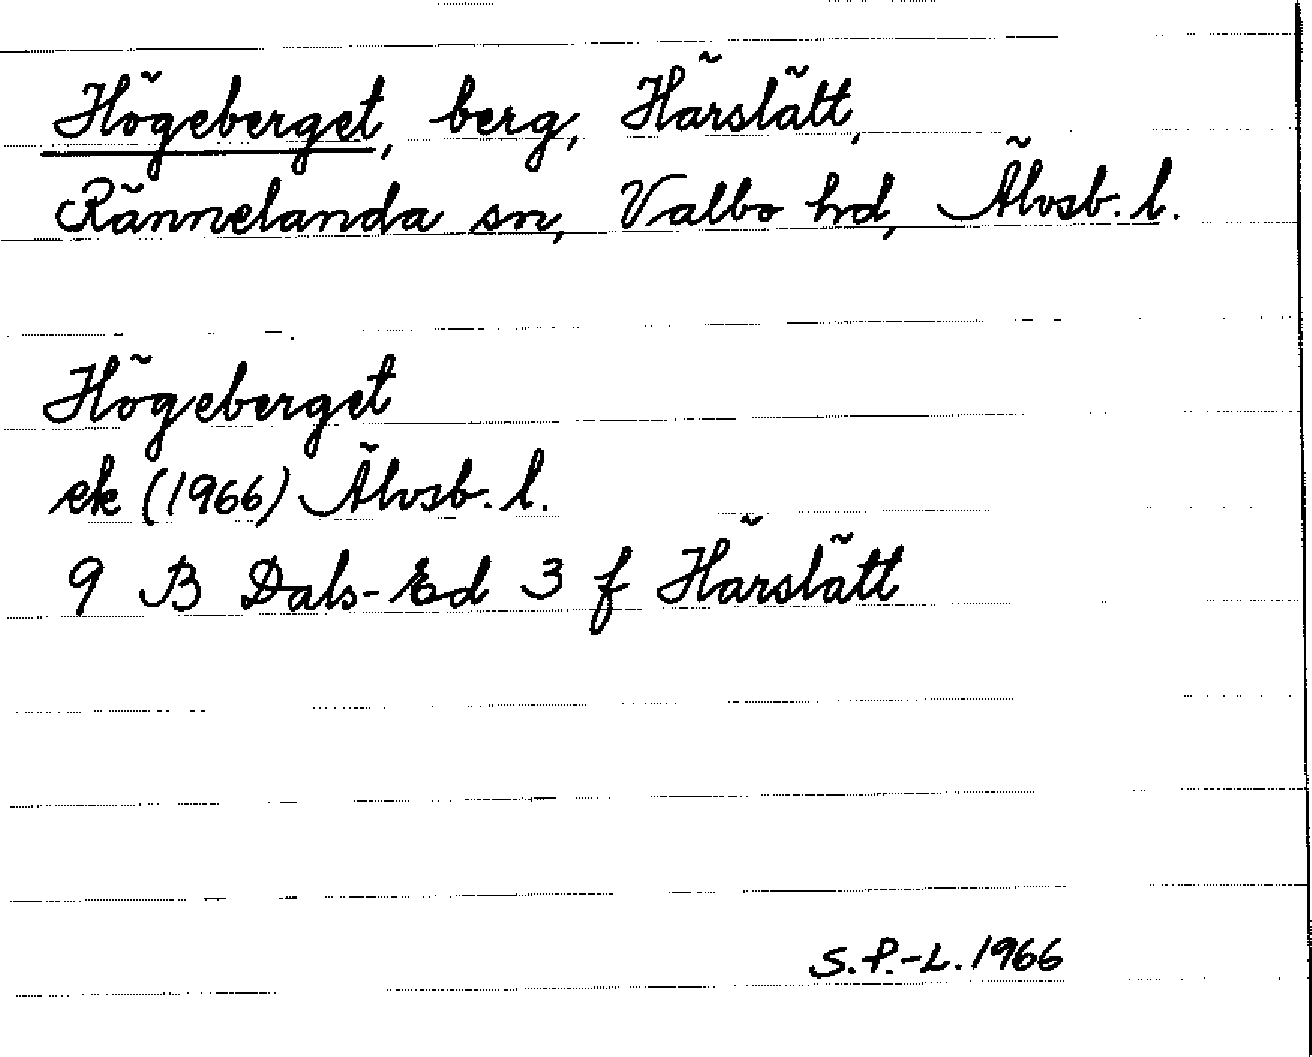 Högeberget, berg, Härslätt,
Rännelanda sn, Valbo hd, Älvsb. l.
Högeberget
ek (1966) Älvsb. l.
9 B Dals-Ed 3 f Härslätt
S.P.-L. 1966